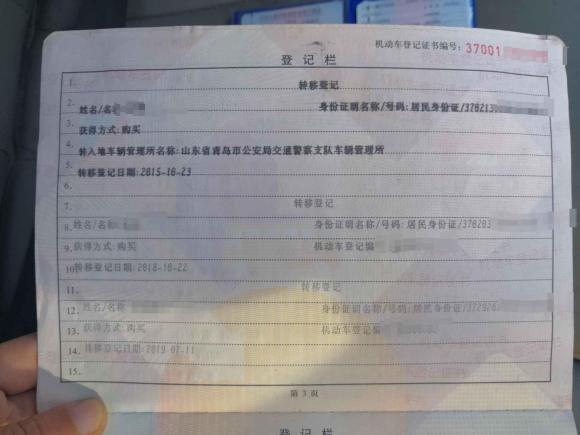 机动车登记证书编号: 37001
登 记 栏
1. 转移登记
2. 姓名/名称 身份证明名称/号码: 居民身份证/378213
3. 获得方式: 购买
4. 转入地车辆管理所名称: 山东省青岛市公安局交通警察支队车辆管理所
5. 转移登记日期: 2015-10-23
6.
7. 转移登记
8. 姓名/名 身份证明名称/号码: 居民身份证/370203
9. 获得方式: 购买 机动车登记编
10. 转移登记日期: 2018-10-22
11. 转移登记
12. 姓名/名称 身份证明名称/号码: 居民身份证/372926
13. 获得方式: 购买 机动车登记编
14. 转移登记日期: 2019-07-11
15.
第 3 页
登 记 栏